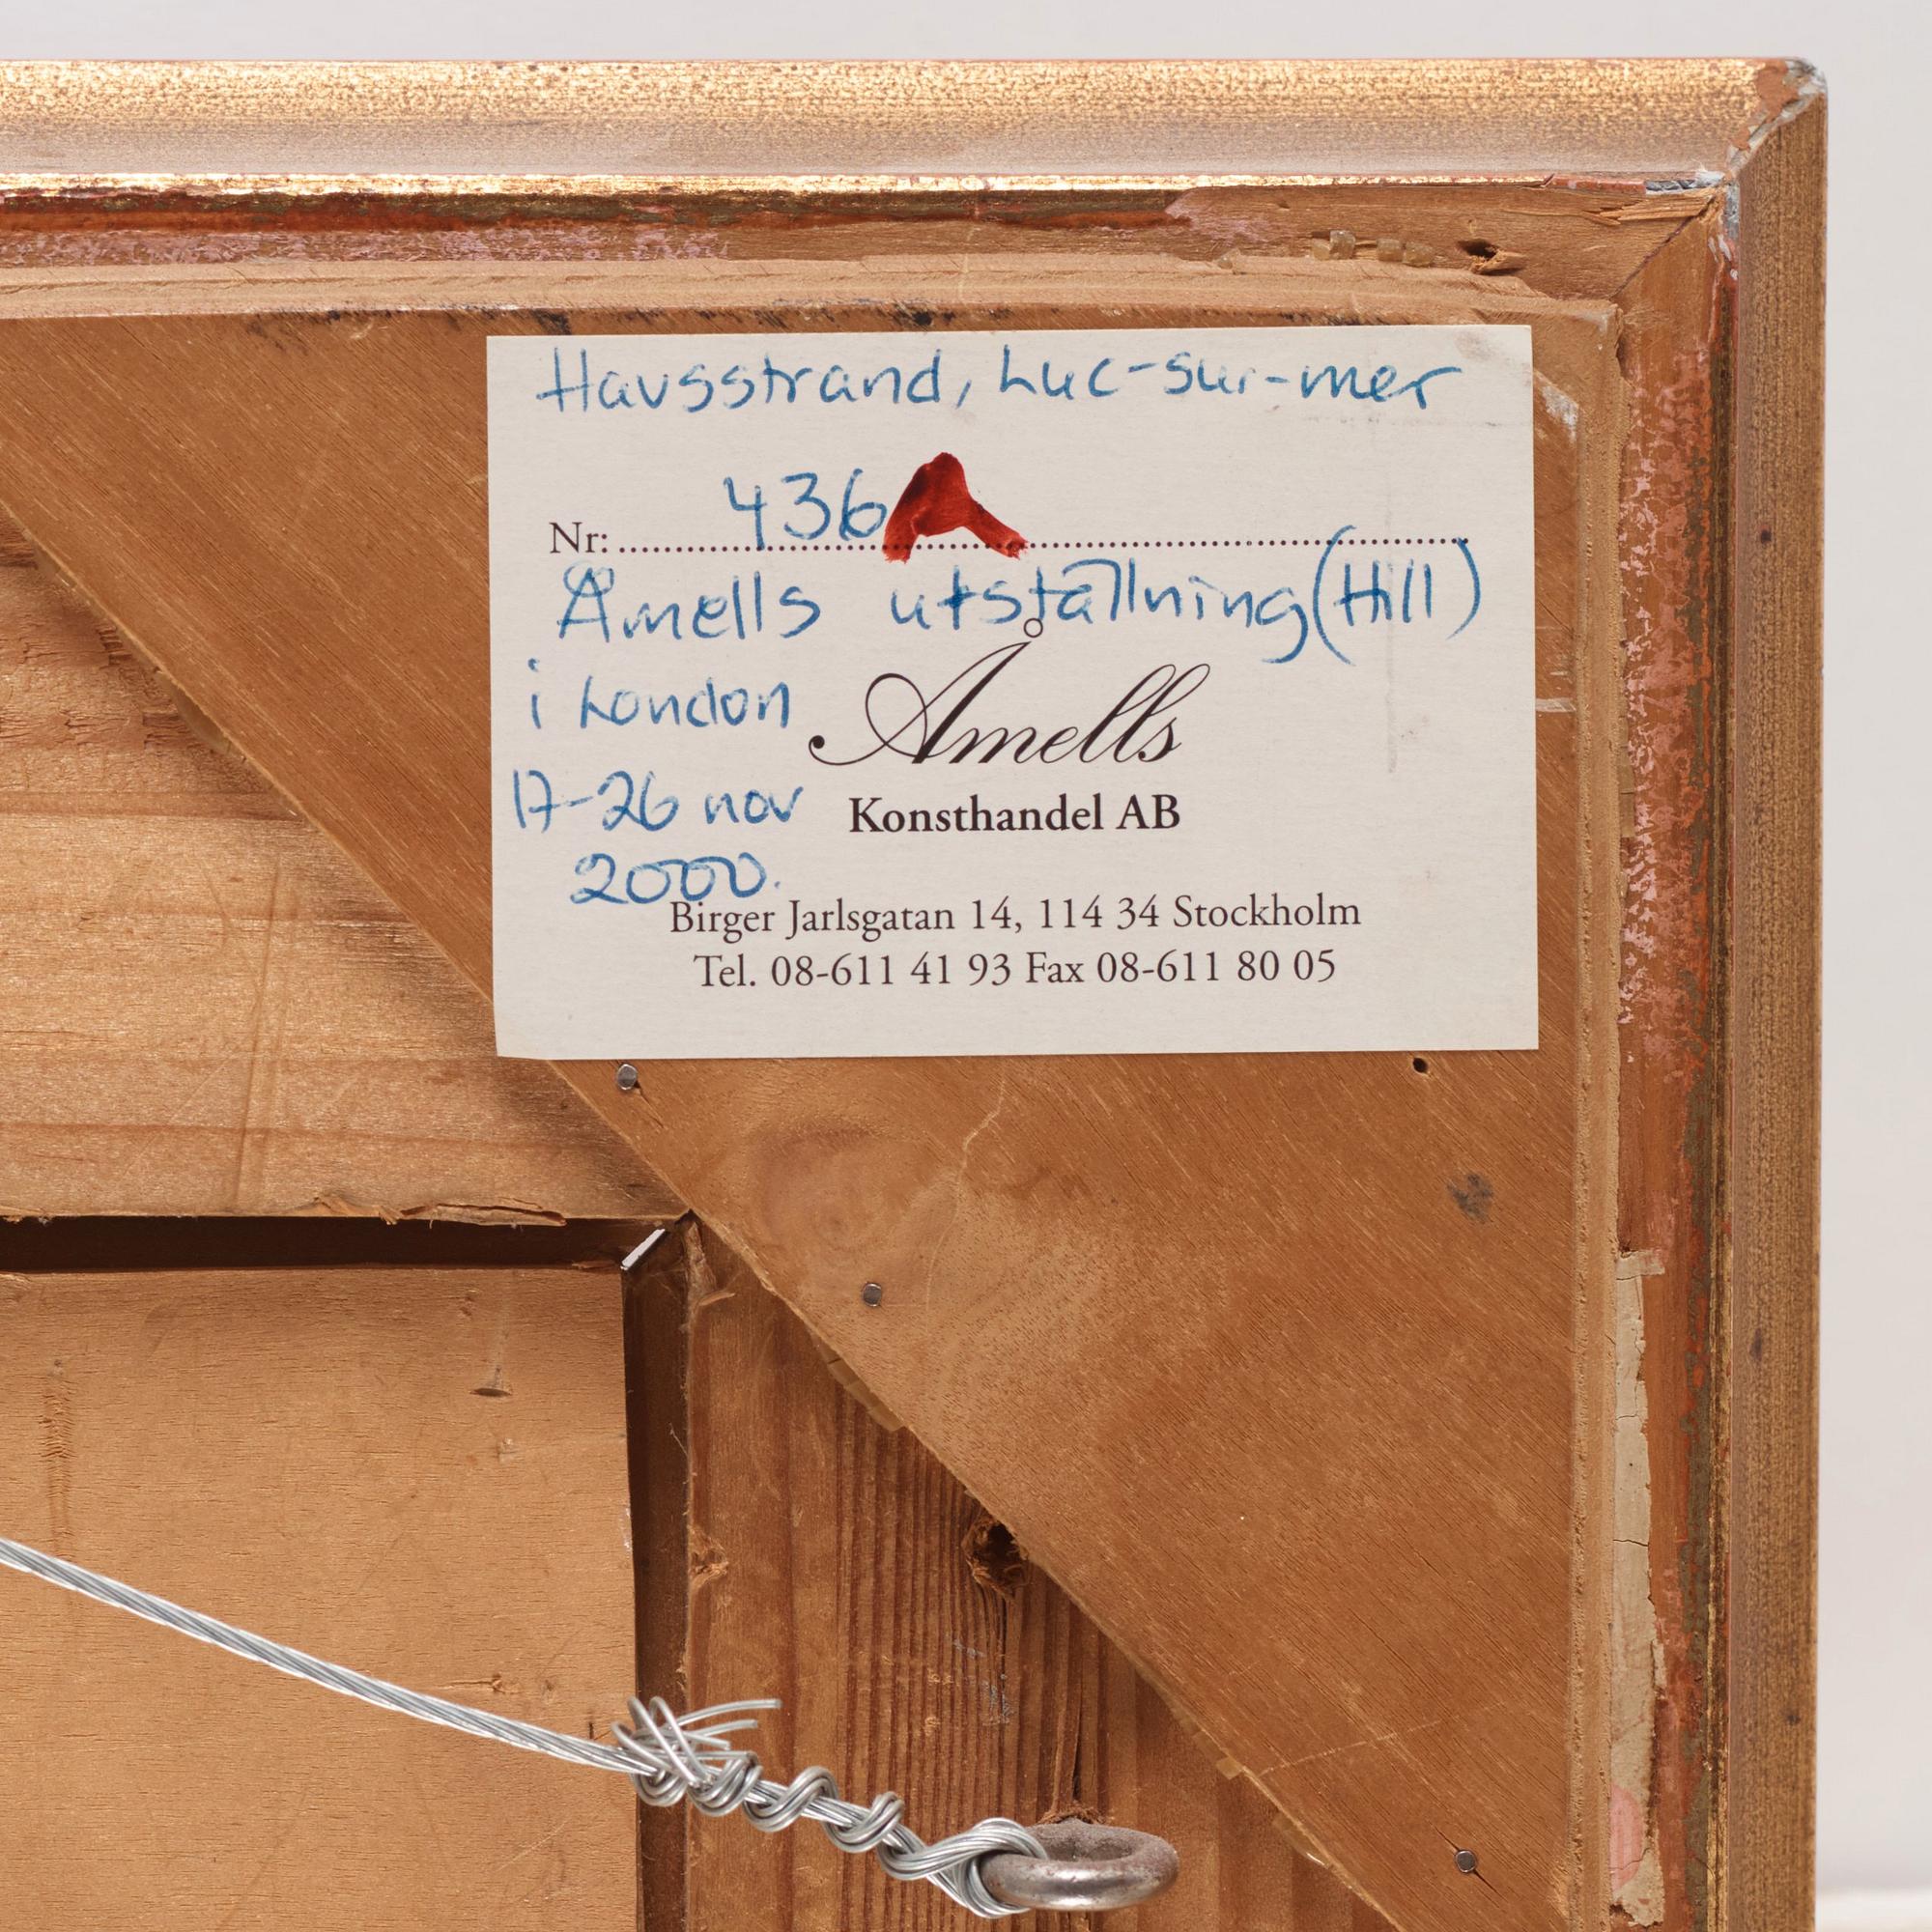 Havsstrand, Luc-sur-mer
Nr: 436
Åmells utställning (Hill)
i London
Åmells
17-26 nov
Konsthandel AB
2000.
Birger Jarlsgatan 14, 114 34 Stockholm
Tel. 08-611 41 93 Fax 08-611 80 05